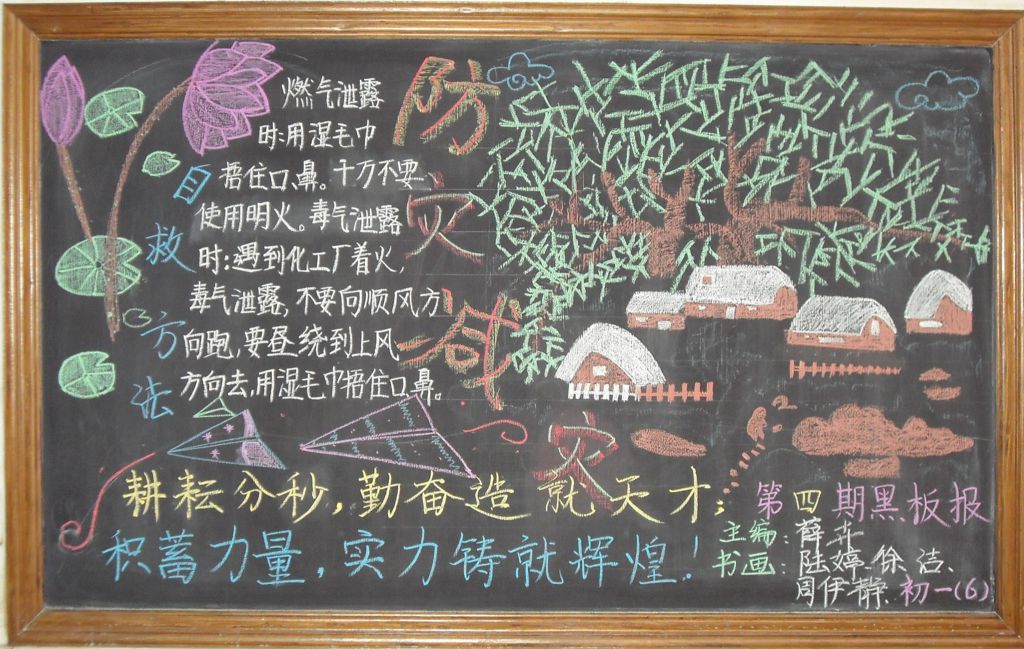 防灾减灾
自救方法
燃气泄露
时:用湿毛巾
捂住口、鼻。千万不要
使用明火。毒气泄露
时:遇到化工厂着火,
毒气泄露,不要向顺风方
向跑,要昼绕到上风
方向去,用湿毛巾捂住口鼻。
耕耘分秒,勤奋造就天才;
积蓄力量,实力铸就辉煌!
第四期黑板报
主编:薛
书画:陆婷、徐洁、
周伊静、初一(6)